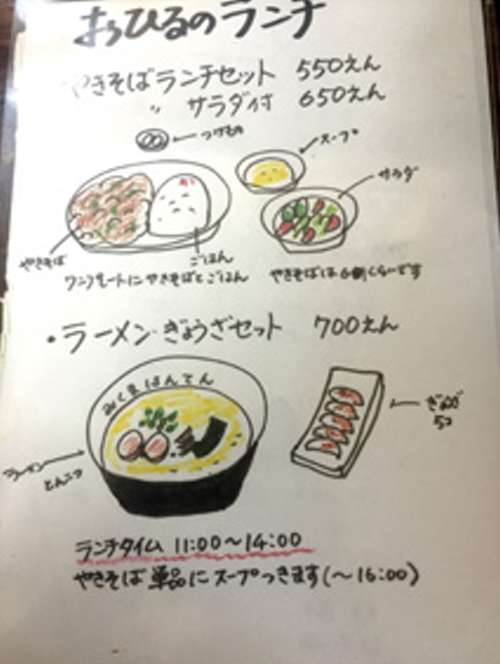 おひるのランチ
やきそばランチセット 550えん
〃 サラダ付 650えん
つけもの
スープ
サラダ
やきそば
ごはん
ワンプレートにやきそばとごはん
やきそばは6割くらいです
・ラーメン・ぎょうざセット 700えん
みくまはんてん
ぎょうざ
5コ
ラーメン
とんこつ
ランチタイム 11:00〜14:00
やきそば単品にスープつきます(〜16:00)